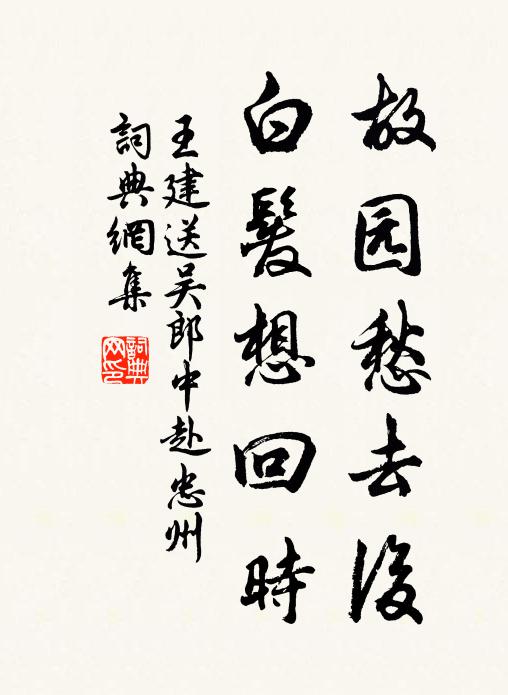 故园愁去後
白髮想回時
王建送吴郎中赴忠州
詞典網集
詞典网印